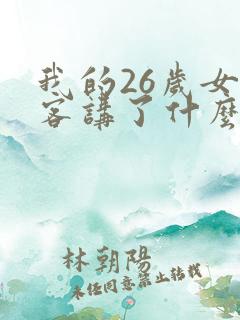 我的26歲女
客講了什麼
林朝陽
未经同意禁止转载